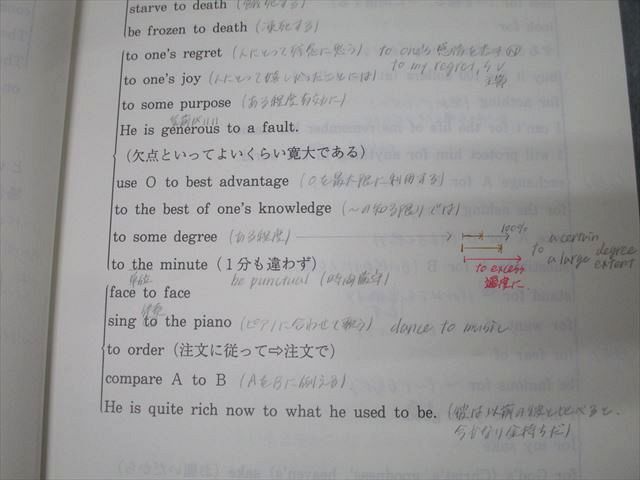 starve to death (餓死する)
be frozen to death (凍死する)
to one's regret (人にとって残念に思う) to one's 感情を表す
to my regret, S V
主節
to one's joy (人にとって嬉しかったことには)
to some purpose (ある程度有効に)
気前がいい
He is generous to a fault.
(欠点といってよいくらい寛大である)
use O to best advantage (Oを最大限に利用する)
to the best of one's knowledge (〜の知る限りでは)
100%
to some degree (ある程度)
to a certain degree
a large extent
to excess
過度に
to the minute (1分も違わず)
be punctual (時間厳守)
face to face
sing to the piano (ピアノに合わせて歌う) dance to music
to order (注文に従って⇒注文で)
compare A to B (AをBに例える)
He is quite rich now to what he used to be. (彼は以前の彼と比べると、
今かなり金持ちだ)
for my sake
for God's (Christ's, goodness', heaven's) sake (お願いだから)